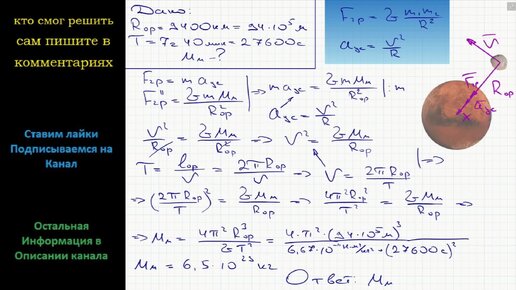 кто смог решить
сам пишите в
комментариях
Ставим лайки
Подписываемся на
Канал
Остальная
Информация в
Описании канала
Дано:
Rор = 9400км = 94·10⁵м
T = 7ч 40мин = 27600с
Mм - ?
Fгр = G m₁m₂/R²
aцс = v²/R
Fгр = m aцс
Fгр = G mMм/R²ор
=> m aцс = G mMм/R²ор |:m
aцс = v²/R
v²/Rор = G Mм/R²ор => v² = G Mм/Rор
T = lор/v = 2πRор/v => v = 2πRор/T |=>
=> (2πRор/T)² = G Mм/Rор => 4π²R²ор/T² = G Mм/Rор =>
=> Mм = 4π²R³ор/GT² = 4·π²·(94·10⁵м)³/6,67·10⁻¹¹ Н·м²/кг²·(27600с)²
Mм = 6,5·10²³ кг
Ответ: Mм
v
Fгр
Rор
aцс
x